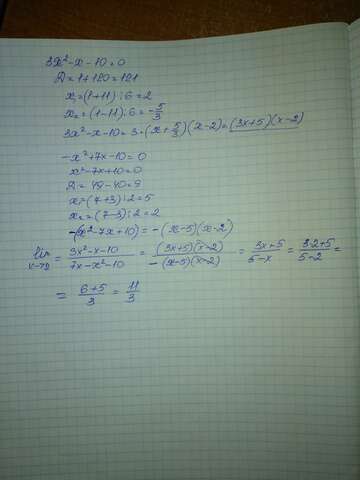 3x²-x-10=0
D=1+120=121
x₁=(1+11):6=2
x₂=(1-11):6=-5/3
3x²-x-10=3·(x+5/3)(x-2)=(3x+5)(x-2)
-x²+7x-10=0
x²-7x+10=0
D=49-40=9
x₁=(7+3):2=5
x₂=(7-3):2=2
-(x²-7x+10)=-(x-5)(x-2)
lim x→2 = (3x²-x-10)/(7x-x²-10) = ((3x+5)(x-2))/(-(x-5)(x-2)) = (3x+5)/(5-x) = (3·2+5)/(5-2) =
= (6+5)/3 = 11/3